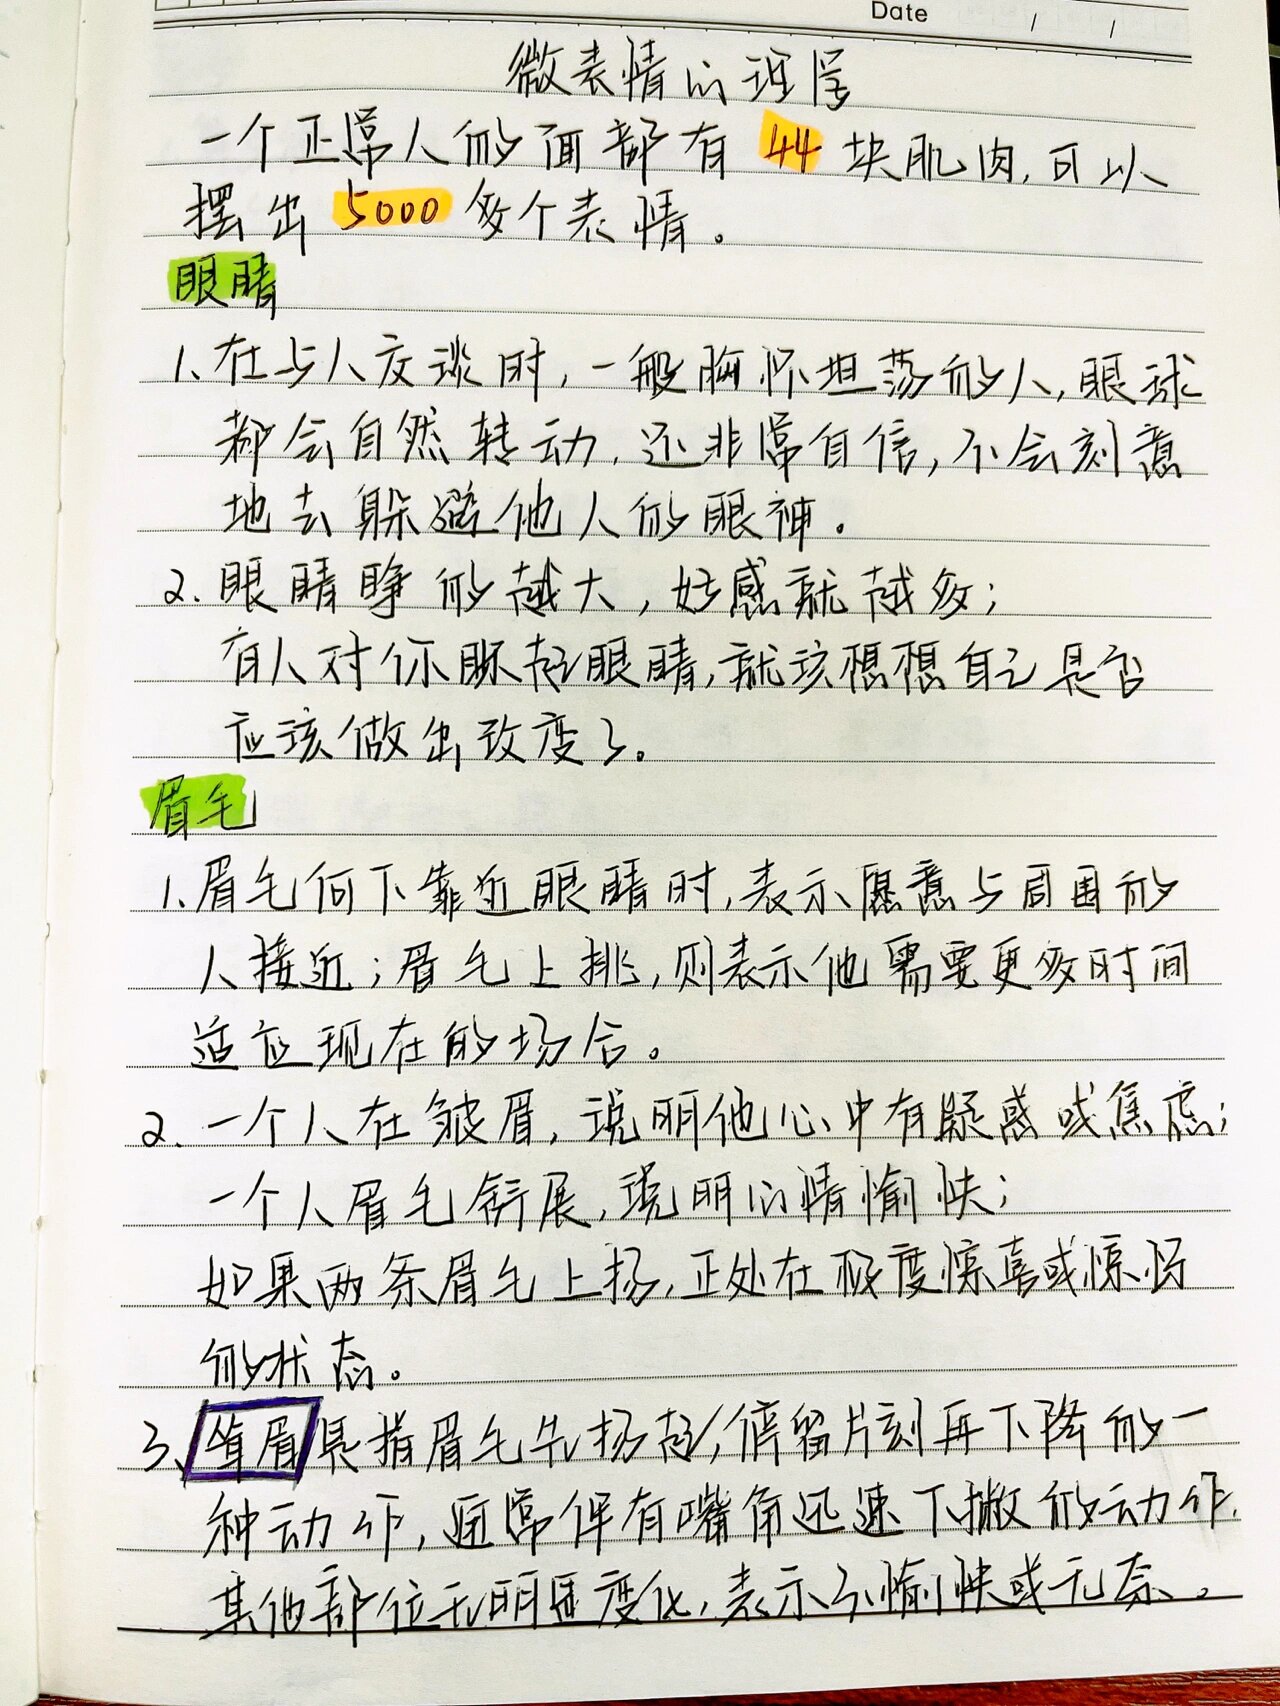 Date / /
微表情心理学
一个正常人的面部有44块肌肉,可以
摆出5000多个表情。
眼睛
1、在与人交谈时,一般胸怀坦荡的人,眼球
都会自然转动,还非常自信,不会刻意
地去躲避他人的眼神。
2、眼睛睁的越大,好感就越多;
有人对你眯起眼睛,就该想想自己是否
应该做出改变了。
眉毛
1、眉毛向下靠近眼睛时,表示愿意与周围的
人接近;眉毛上挑,则表示他需要更多时间
适应现在的场合。
2、一个人在皱眉,说明他心中有疑惑或焦虑;
一个人眉毛舒展,说明心情愉快;
如果两条眉毛上扬,正处在极度惊喜或惊恐
的状态。
3、耸眉是指眉毛先扬起,停留片刻再下降的一
种动作,通常伴有嘴角迅速下撇的动作,
其他部位无明显变化,表示不愉快或无奈。